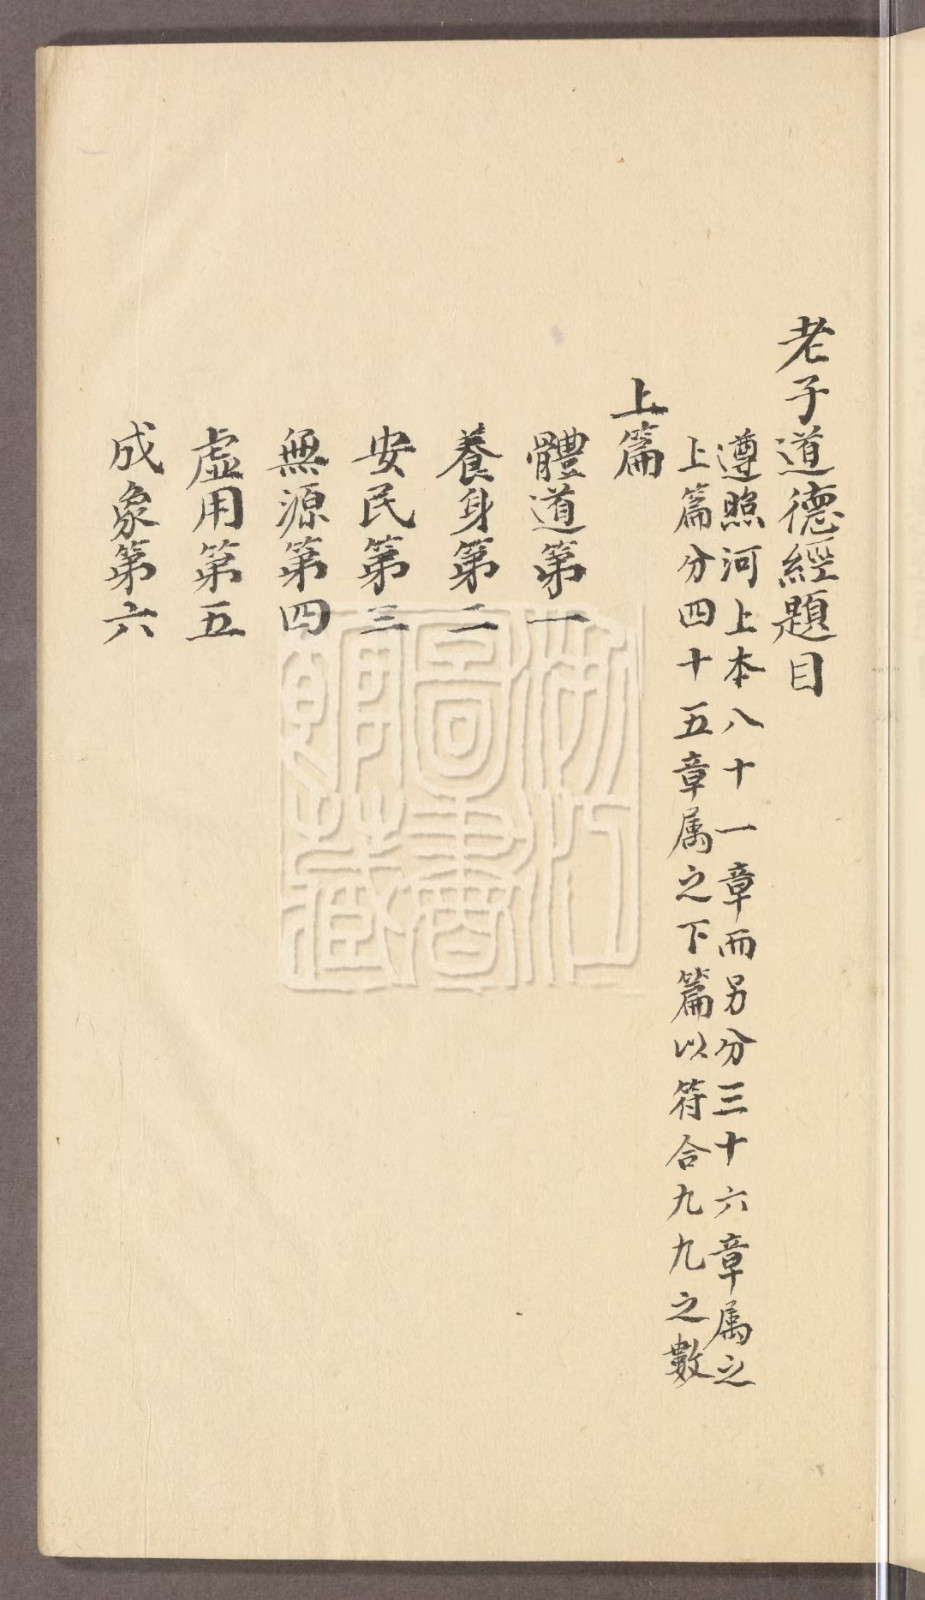 老子道德經題目
遵照河上本八十一章而另分三十六章属之
上篇分四十五章属之下篇以符合九九之數
上篇
體道第一
養身第二
安民第三
無源第四
虛用第五
成象第六